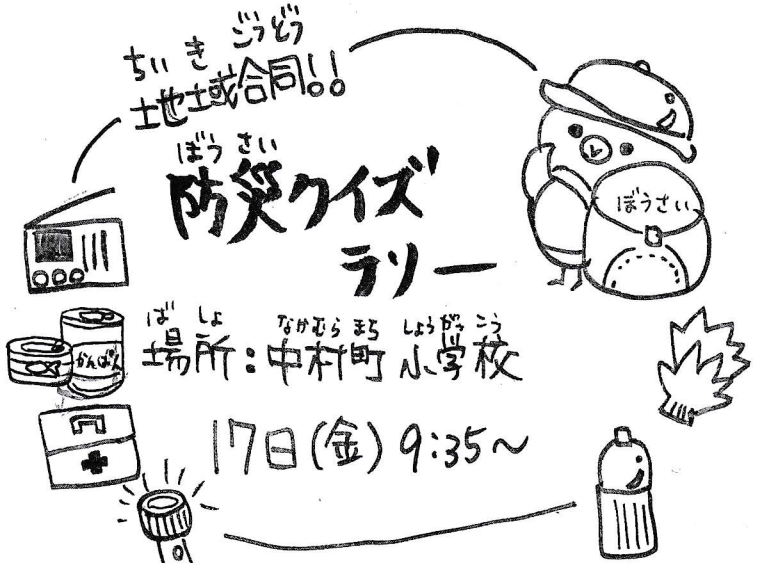 ちいき ごうどう
地域合同!!
ぼうさい
防災クイズ
ラリー
ぼうさい
ばしょ なかむらまち しょうがっこう
場所:中村町 小学校
かんぱん
17日(金) 9:35~